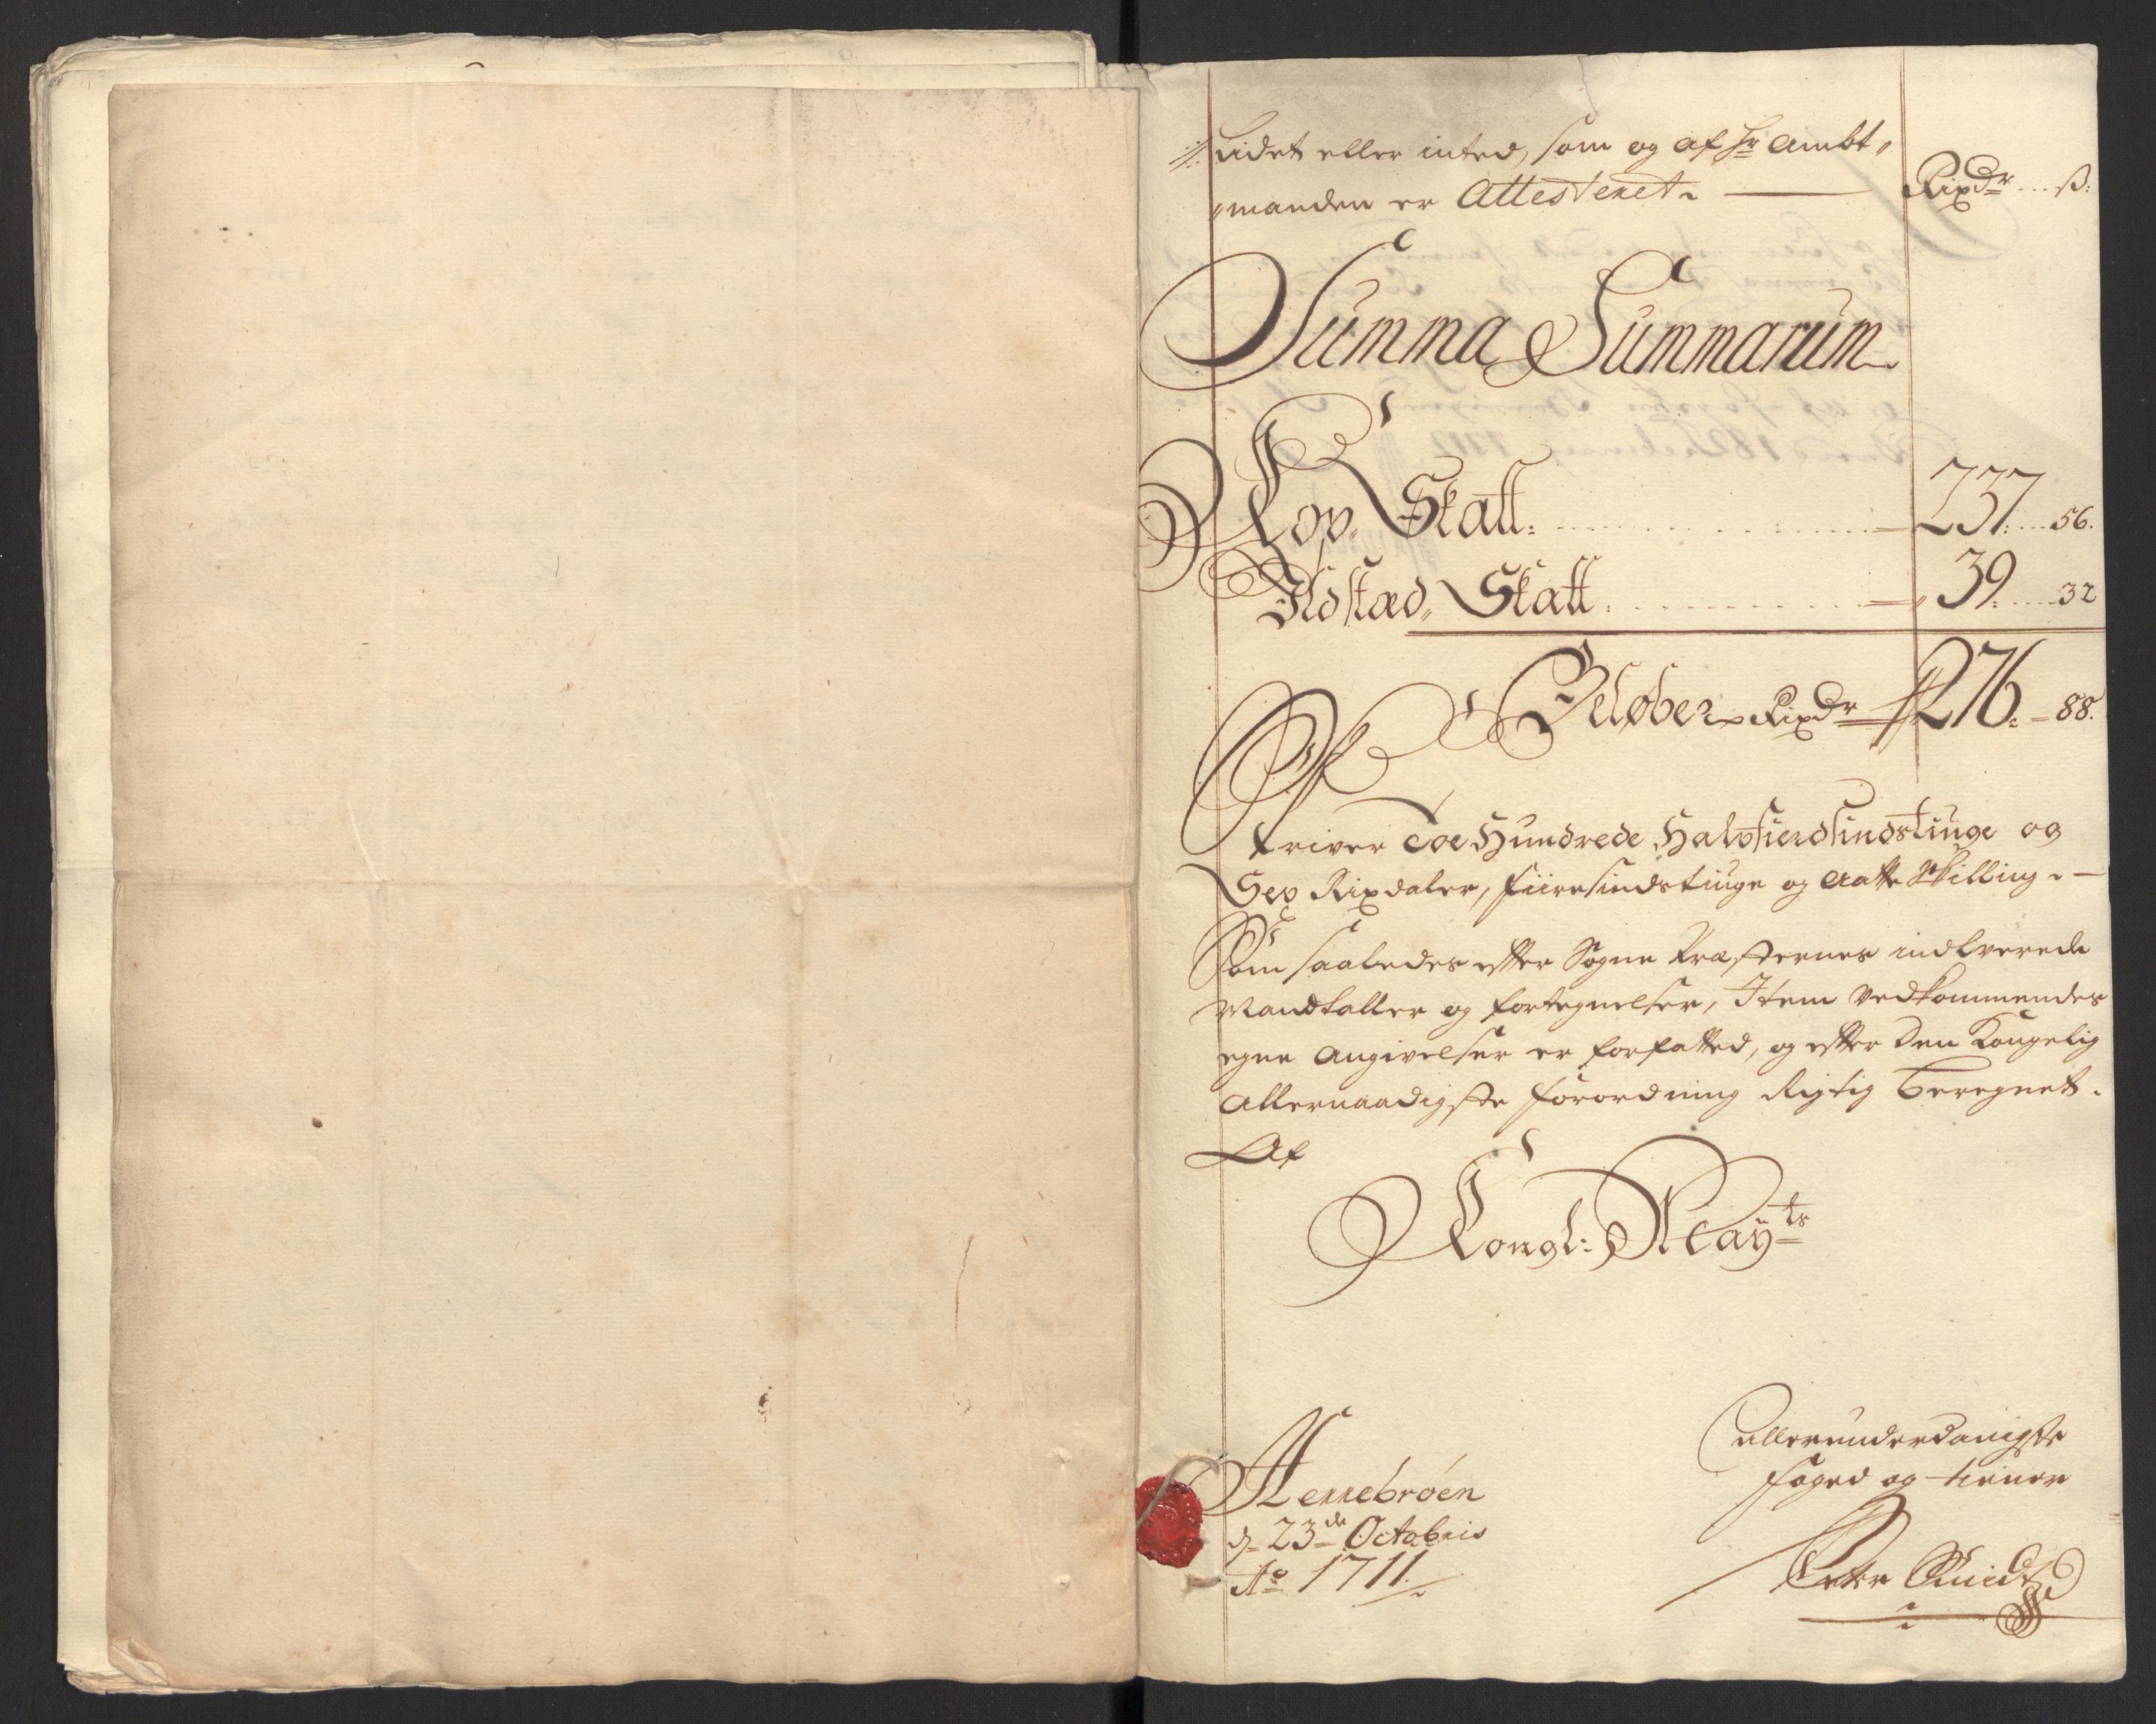 //: lidet eller inted, som og af Hr Ambt„
„manden er Attesteret. Rixdr ß:
Summa Summarum
Kop Skatt: 237. 56.
Ildsted„ Skatt. 39. 32
Beløber Rixdr 276. 88.
Skriver Toe Hundrede Halvfierdsindstiuge og
Sex Rixdaler, fiiresindstiuge og Aatte Skilling.
Som saaledes efter Sogne Præsternes indleverede
Mandtaller og fortegnelser, Item Vedkommendes
egne Angivelser er forfatted, og efter Den Kongelig
Allernaadigste forordning Rigtig beregnet.
Af
Kongl: Mayts
allerunderdanigste
foged og tiener
Hennebröen
d 23de Octobris
Ao 1711.
Peter